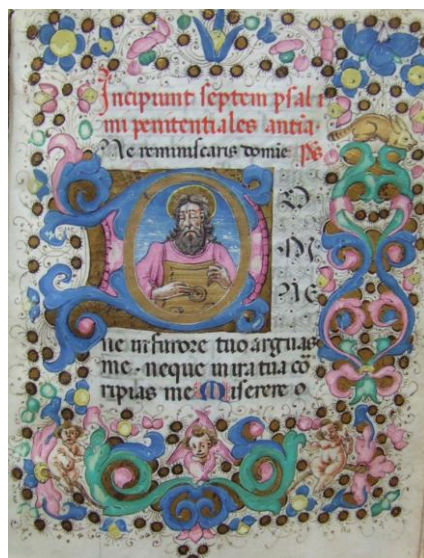 Incipiunt septem psal i
mi penitentiales antia·
Ne reminiscaris domie Ps
D O
M
NE
ne in furore tuo arguas
me · neque in ira tua cō
ripias me Miserere o